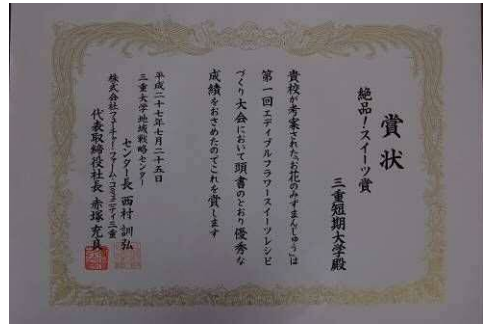 賞状
絶品!スイーツ賞
三重短期大学殿
貴校が考案された「お花のみずまんじゅう」は
第一回エディブルフラワースイーツレシピ
づくり大会において頭書のとおり優秀な
成績をおさめたのでこれを賞します
平成二十七年七月二十五日
三重大学地域戦略センター
センター長 西村訓弘
株式会社フューチャーファームコミュニティ三重
代表取締役社長 赤塚充良